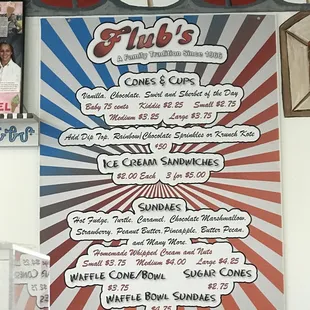 Flub's
A Family Tradition Since 1966
Cones & Cups
Vanilla, Chocolate, Swirl and Sherbet of the Day
Baby 75 cents Kiddie $2.25 Small $2.75
Medium $3.25 Large $3.75
Add Dip Top, Rainbow/Chocolate Sprinkles or Krunch Kote
$50
Ice Cream Sandwiches
$2.00 Each 3 for $5.00
Sundaes
Hot Fudge, Turtle, Caramel, Chocolate Marshmallow,
Strawberry, Peanut Butter, Pineapple, Butter Pecan,
and Many More.
Homemade Whipped Cream and Nuts
Small $3.75 Medium $4.00 Large $4.25
Waffle Cone/Bowl Sugar Cones
$3.75 $2.75
Waffle Bowl Sundaes